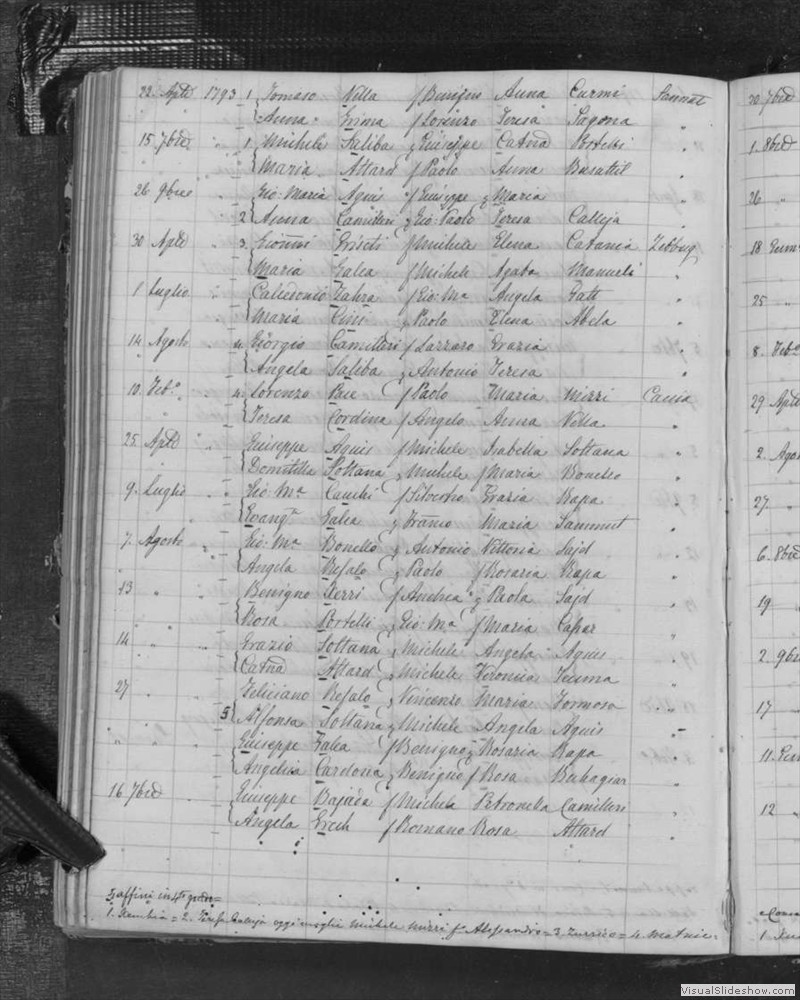 22. Aple 1793 1 Tomaso Villa f Benigno Anna Curmi Sannat
Anna Grima f Lorenzo Teresa Pagona "
15 7bre " 1 Michele Saliba f Giuseppe Catna Portelli "
Maria Attard f Paolo Anna Busuttil "
26 9bre " Gio: Maria Agius f Giuseppe Maria "
2 Anna Camilleri Gio: Paolo Teresa Calleja "
30 Aple " 3 Giovni Griscti f Michele Elena Catania Zebbug
Maria Galea f Michele Agata Manueli "
1 Luglio " Calcedonio Zahra f Gio: Ma Angela Gatt "
Maria Cini Paolo Elena Abela "
14 Agosto " 4 Giorgio Camilleri f Lazzaro Grazia "
Angela Saliba Antonio Teresa "
10. Febo. " 4 Lorenzo Pace f Paolo Maria Mizzi Caccia
Teresa Cordina f Angelo Anna Villa "
25 Aple " Giuseppe Agius f Michele Isabella Soltana "
Domitilla Soltana Michele f Maria Bonello "
9. Luglio " Gio: Ma Cauchi f Grazia Rapa "
Evangta Galea Maria Sammut "
7. Agosto " Gio: Ma Bonello Antonio Vittoria Sajd "
Angela Refalo Paolo f Rosaria Rapa "
13 " " Benigno Xerri f Andrea Paola Sajd "
Rosa Portelli Gio: Ma f Maria Capar "
14 " " Grazio Soltana Michele Angela Agius "
Catna Attard Michele Veronica "
27 " " Feliciano Refalo Vincenzo Maria Formosa "
5 Alfonsa Soltana Michele Angela Agius "
" " Giuseppe Galea f Benigno Rosaria Rapa "
Angelica Cardona Benigno f Rosa Buhagiar "
16. 7bre Giuseppe Bajada f Michele Petronella Camilleri "
Angela Grech f Romano Rosa Attard "
5 affini in 4to grado =
1. = 2. Teresa Calleja oggi moglie Michele Mizzi fo Alessandro = 3. = 4.
20 7bre
1. 8bre
26 "
18
25 "
8. Febo
29 Aple
2. Agos
27. "
6. 8bre
19 "
2. 9br
17 "
11.
12 "
1
VisualSlideshow.com